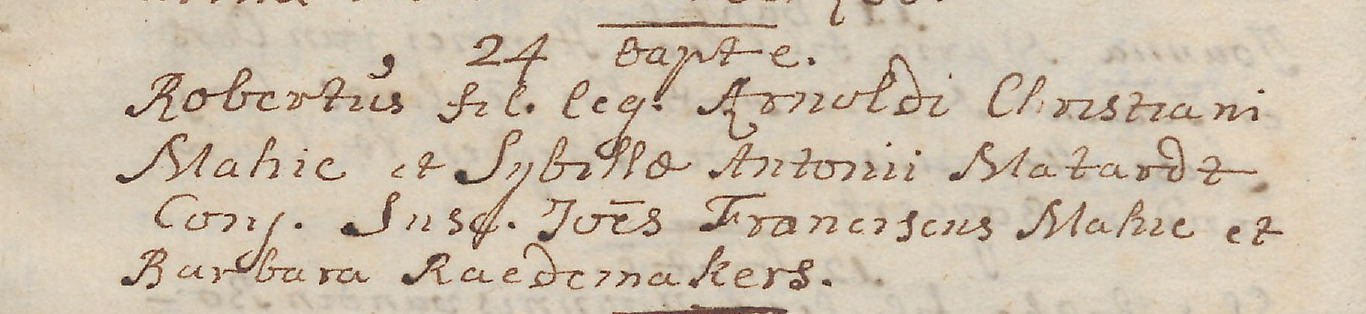 24 bapt e.
Robertus fil. leg. Arnoldi Christiani
Mahie et Sybillæ Antonii Matardt
Conj. Susc. Joēs Franciscus Mahie et
Barbara Raedemakers.